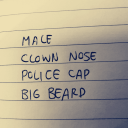 MALE
CLOWN NOSE
POLICE CAP
BIG BEARD